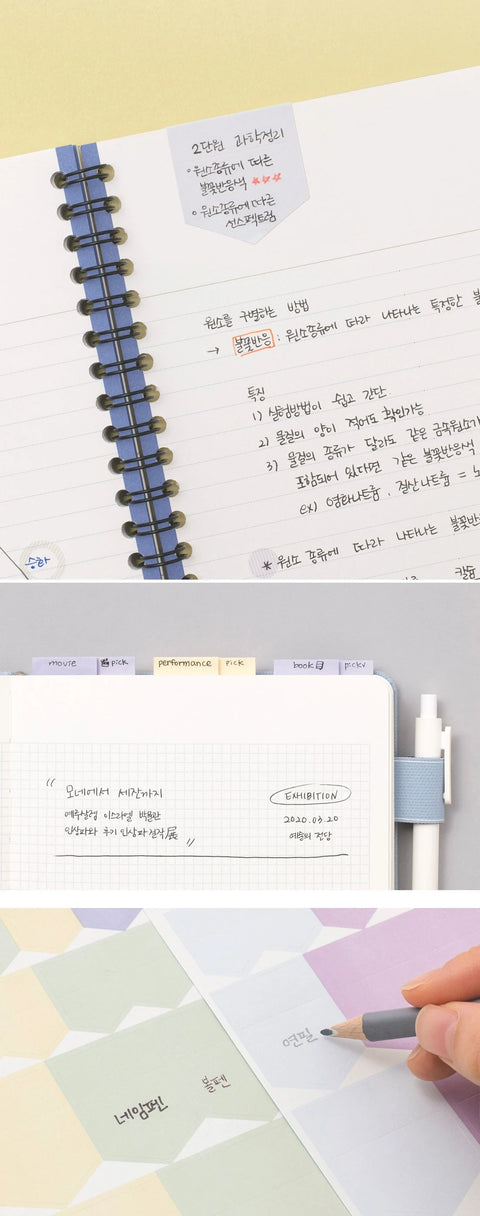 2단원 과학정리
원소종류에 따른
불꽃반응색
원소종류에 따른
선스펙트럼
원소를 구별하는 방법
→ 불꽃반응 : 원소종류에 따라 나타나는 특정한 불
특징
1) 실험방법이 쉽고 간단
2) 물질의 양이 적어도 확인가능
3) 물질의 종류가 달라도 같은 금속원소가
포함되어 있다면 같은 불꽃반응색
ex) 염화나트륨, 질산나트륨 = 노
* 원소 종류에 따라 나타나는 불꽃반
칼슘
승하
movie pick performance pick book pick
“ 모네에서 세잔까지
예루살렘 이스라엘 박물관
인상파와 후기 인상파 걸작展 ”
EXHIBITION
2020.03.20
예술의 전당
연필
볼펜
네임펜